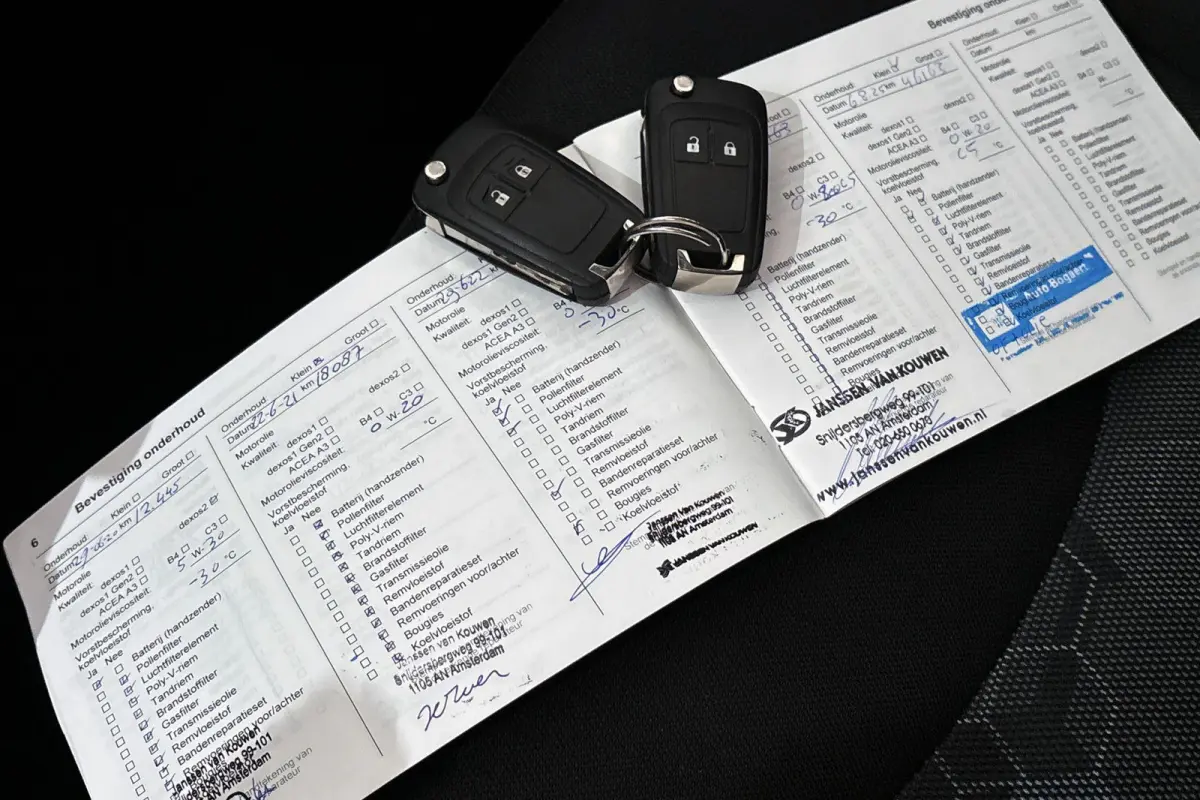 6
Bevestiging onderhoud
Onderhoud: Klein Groot
Datum 29-06-20 km 12.445
Motorolie
Kwaliteit: dexos1 dexos2
dexos1 Gen2
ACEA A3 B4 C3
Motorolieviscositeit: 5 W-30
Vorstbescherming,
koelvloeistof -30 °C
Ja Nee
Batterij (handzender)
Pollenfilter
Luchtfilterelement
Poly-V-riem
Tandriem
Brandstoffilter
Gasfilter
Transmissieolie
Remvloeistof
Bandenreparatieset
Remvoeringen voor/achter
Janssen van Kouwen
Snijdersbergweg 99-101
1105 AN Amsterdam
Onderhoud: Klein Groot
Datum 22-6-21 km 18087
Motorolie
Kwaliteit: dexos1 dexos2
dexos1 Gen2
ACEA A3 B4 C3
Motorolieviscositeit: 0 W-20
Vorstbescherming,
koelvloeistof °C
Ja Nee
Batterij (handzender)
Pollenfilter
Luchtfilterelement
Poly-V-riem
Tandriem
Brandstoffilter
Gasfilter
Transmissieolie
Remvloeistof
Bandenreparatieset
Remvoeringen voor/achter
Bougies
Koelvloeistof
Janssen van Kouwen
Snijdersbergweg 99-101
1105 AN Amsterdam
Onderhoud:
Datum
Motorolie
Kwaliteit: dexos1
dexos1 Gen2
ACEA A3 B4
Motorolieviscositeit: 0
Vorstbescherming,
koelvloeistof -30 °C
Ja Nee
Batterij (handzender)
Pollenfilter
Luchtfilterelement
Poly-V-riem
Tandriem
Brandstoffilter
Gasfilter
Transmissieolie
Remvloeistof
Bandenreparatieset
Remvoeringen voor/achter
Bougies
Koelvloeistof
Janssen Van Kouwen
Snijdersbergweg 99-101
1105 AN Amsterdam
JANSSEN VAN KOUWEN
Groot
dexos2
B4 C3
0 W-
-30 °C
Batterij (handzender)
Pollenfilter
Luchtfilterelement
Poly-V-riem
Tandriem
Brandstoffilter
Gasfilter
Transmissieolie
Remvloeistof
Bandenreparatieset
Remvoeringen voor/achter
Bougies
JANSSEN VAN KOUWEN
Snijdersbergweg 99-101
1105 AN Amsterdam
www.janssenvankouwen.nl
Bevestiging
Onderhoud: Klein Groot
Datum 6 8 25 km 46163
Motorolie
Kwaliteit: dexos1 dexos2
dexos1 Gen2
ACEA A3 B4 C3
Motorolieviscositeit: 0 W-20
Vorstbescherming,
koelvloeistof °C
Ja Nee
Batterij (handzender)
Pollenfilter
Luchtfilterelement
Poly-V-riem
Tandriem
Brandstoffilter
Gasfilter
Transmissieolie
Remvloeistof
Bandenreparatieset
Auto Bogaert
Onderhoud: Klein Groot
Datum km
Motorolie
Kwaliteit: dexos1 dexos2
dexos1 Gen2
ACEA A3 B4 C3
Motorolieviscositeit: W-
Vorstbescherming,
koelvloeistof °C
Ja Nee
Batterij (handzender)
Pollenfilter
Luchtfilterelement
Poly-V-riem
Tandriem
Brandstoffilter
Gasfilter
Transmissieolie
Remvloeistof
Bandenreparatieset
Remvoeringen voor/achter
Bougies
Koelvloeistof